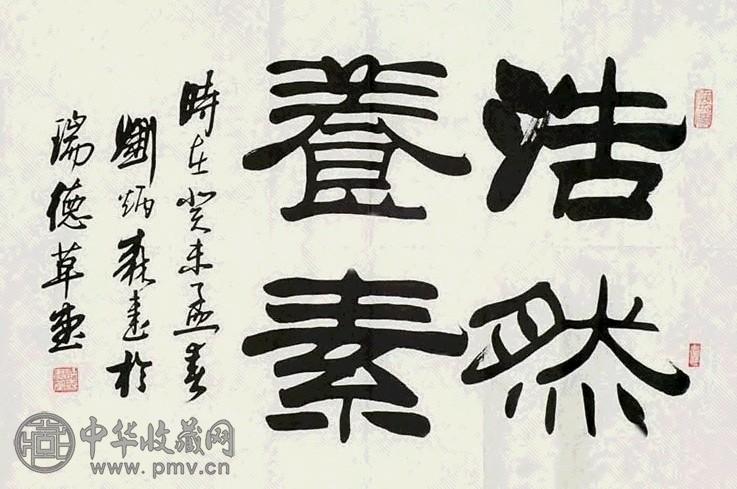 浩然
養素
時在癸未孟春
劉炳森書於
瑞德草堂
中华收藏网
www.pmv.cn